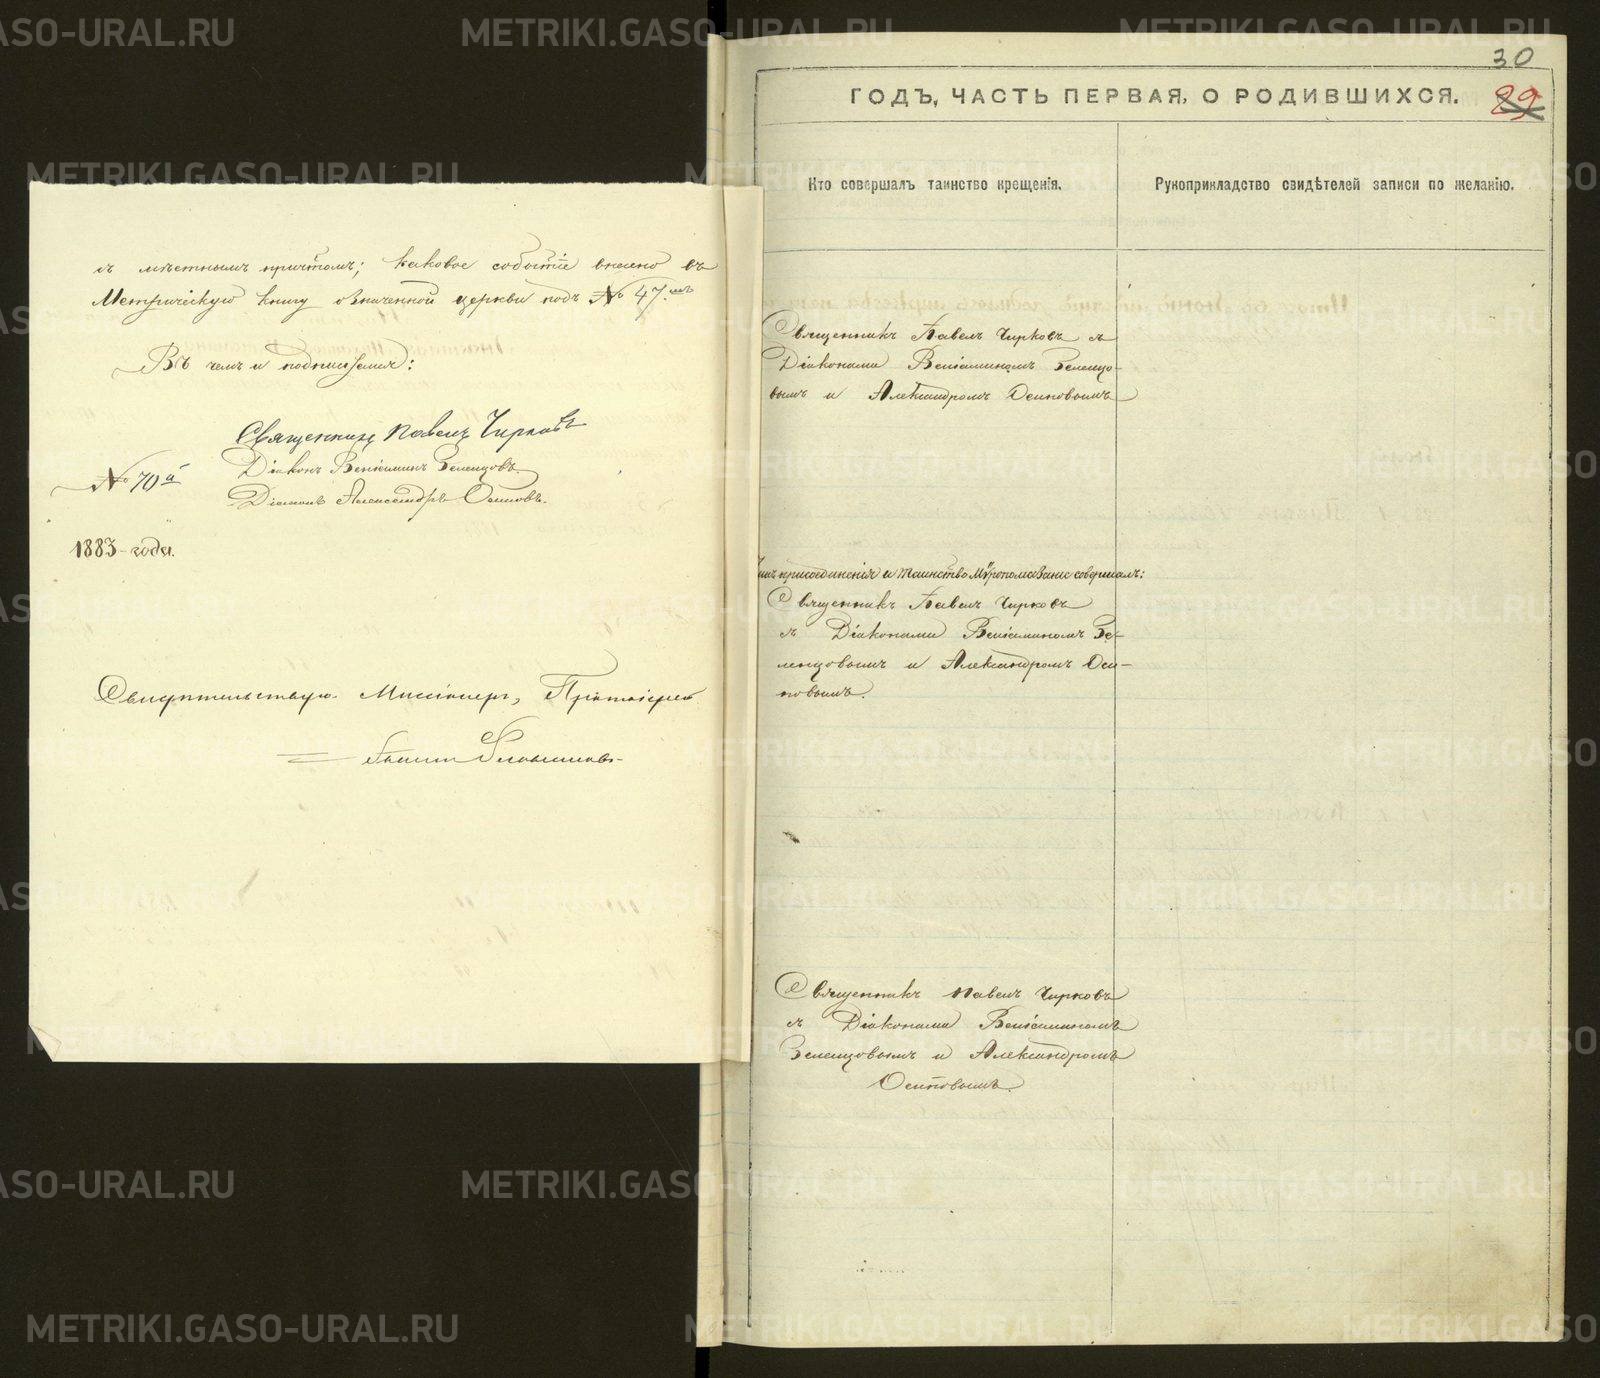 съ мѣстнымъ причтомъ; каковое событіе внесено въ
Метрическую книгу означенной церкви подъ № 47.мъ
Въ чемъ и подписуемся:
Священникъ Павелъ Чирковъ
Діаконъ Веніаминъ Зеленцовъ.
№ 70й
Діаконъ Александръ Осиповъ.
1883-года.
Свидѣтельствую. Миссіонеръ, Протоіерей
30
ГОДЪ, ЧАСТЬ ПЕРВАЯ, О РОДИВШИХСЯ.
29
Кто совершалъ таинство крещенія.
Рукоприкладство свидѣтелей записи по желанію.
Священникъ Павелъ Чирковъ съ
Діаконами Веніаминомъ Зеленцо-
вымъ и Александромъ Осиповымъ
присоединенія и таинство Мѵропомазанія совершалъ:
Священникъ Павелъ Чирковъ
съ Діаконами Веніаминомъ Зе-
ленцовымъ и Александромъ Оси-
повымъ.
Священникъ Павелъ Чирковъ
съ Діаконами Веніаминомъ
Зеленцовымъ и Александромъ
Осиповымъ.
METRIKI.GASO-URAL.RU